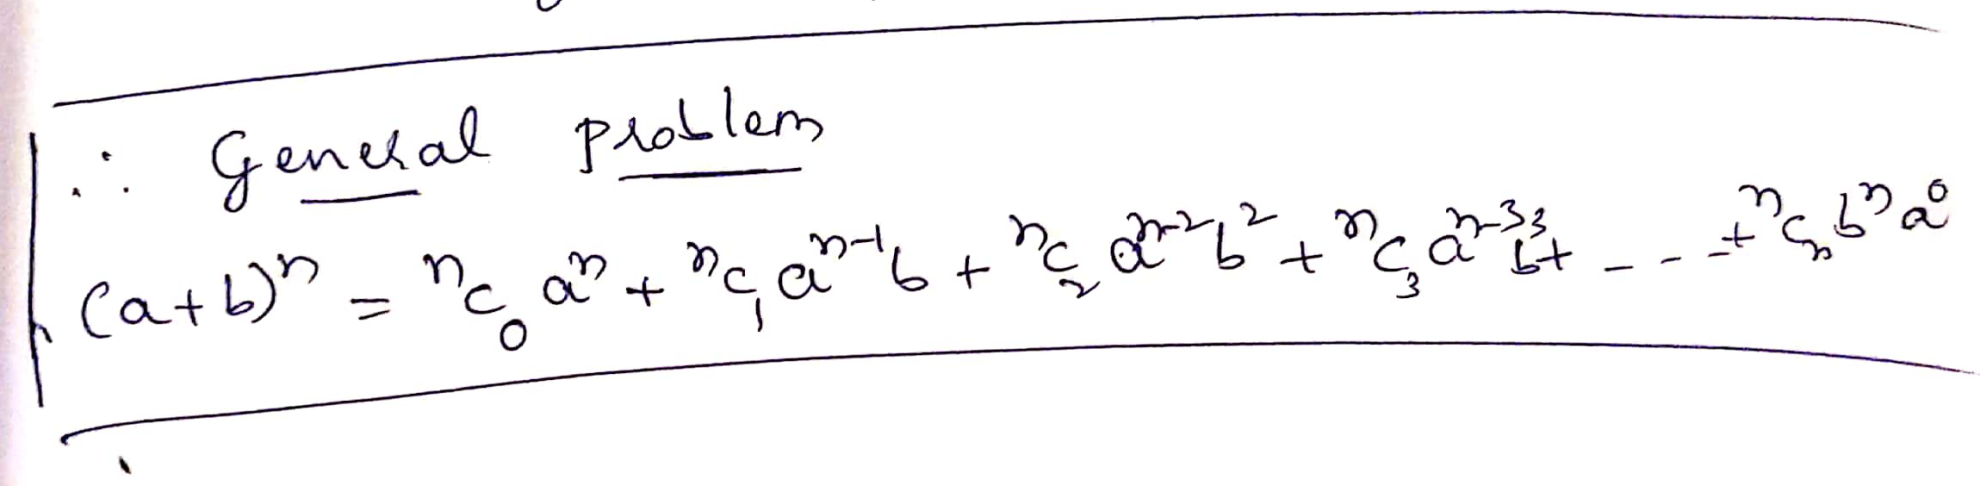 ∴ General problem
(a+b)ⁿ = ⁿC₀ aⁿ + ⁿC₁ aⁿ⁻¹b + ⁿC₂ aⁿ⁻²b² + ⁿC₃ aⁿ⁻³b³ + - - - + ⁿCₙ bⁿ a⁰